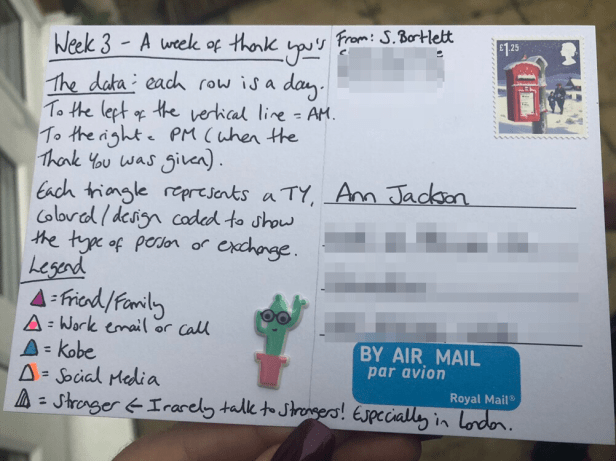 Week 3 - A week of thank you's
The data: each row is a day.
To the left of the vertical line = AM.
To the right = PM (when the
Thank You was given).
Each triangle represents a TY,
colored/design coded to show
the type of person or exchange.
Legend
= Friend/Family
= Work email or call
= Kobe
= Social Media
= Stranger ← I rarely talk to strangers! Especially in London.
From: S. Bartlett
£1.25
Ann Jackson
BY AIR MAIL
par avion
Royal Mail®